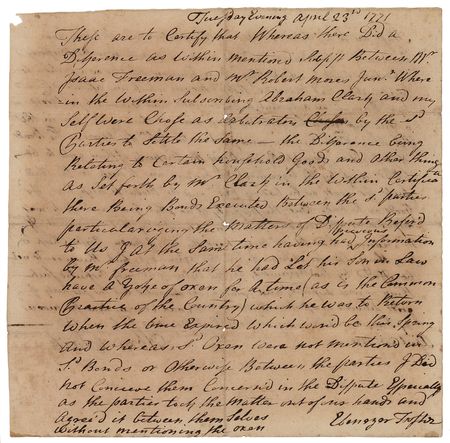 Tuesday Evening April 23rd 1771
These are to Certify that Whereas there Did a
Difference as Within mentioned Subsist Between Mr.
Isaac Freeman and Mr. Robert Mores Junr. Where
in the Within Subscribing Abraham Clark and my
Self Were Chose as Arbitrators by the sd.
Parties to Settle the Same — the Difference being
Relating to Certain household Goods and other things
as Set forth by Mr. Clark in the Within Certificate
there Being Bonds Executed between the sd. parties
particularizing the Matters of Dispute Referd
to Us I At the Same time having had previous Information
by Mr. Freeman that he had Let his Son in Law
have a Yoke of oxen for A time (as is the Common
Practice of the Country) which he was to Return
When the time Expired Which would be this Spring
and Whereas Sd. Oxen were not mentioned in
Sd. Bonds or Otherwise Between the parties I Did
not Concieve them Concerned in the Dispute Especially
as the parties took the Matter out of our hands and
Agree'd it between themselves
Without mentioning the oxen
Ebenezer